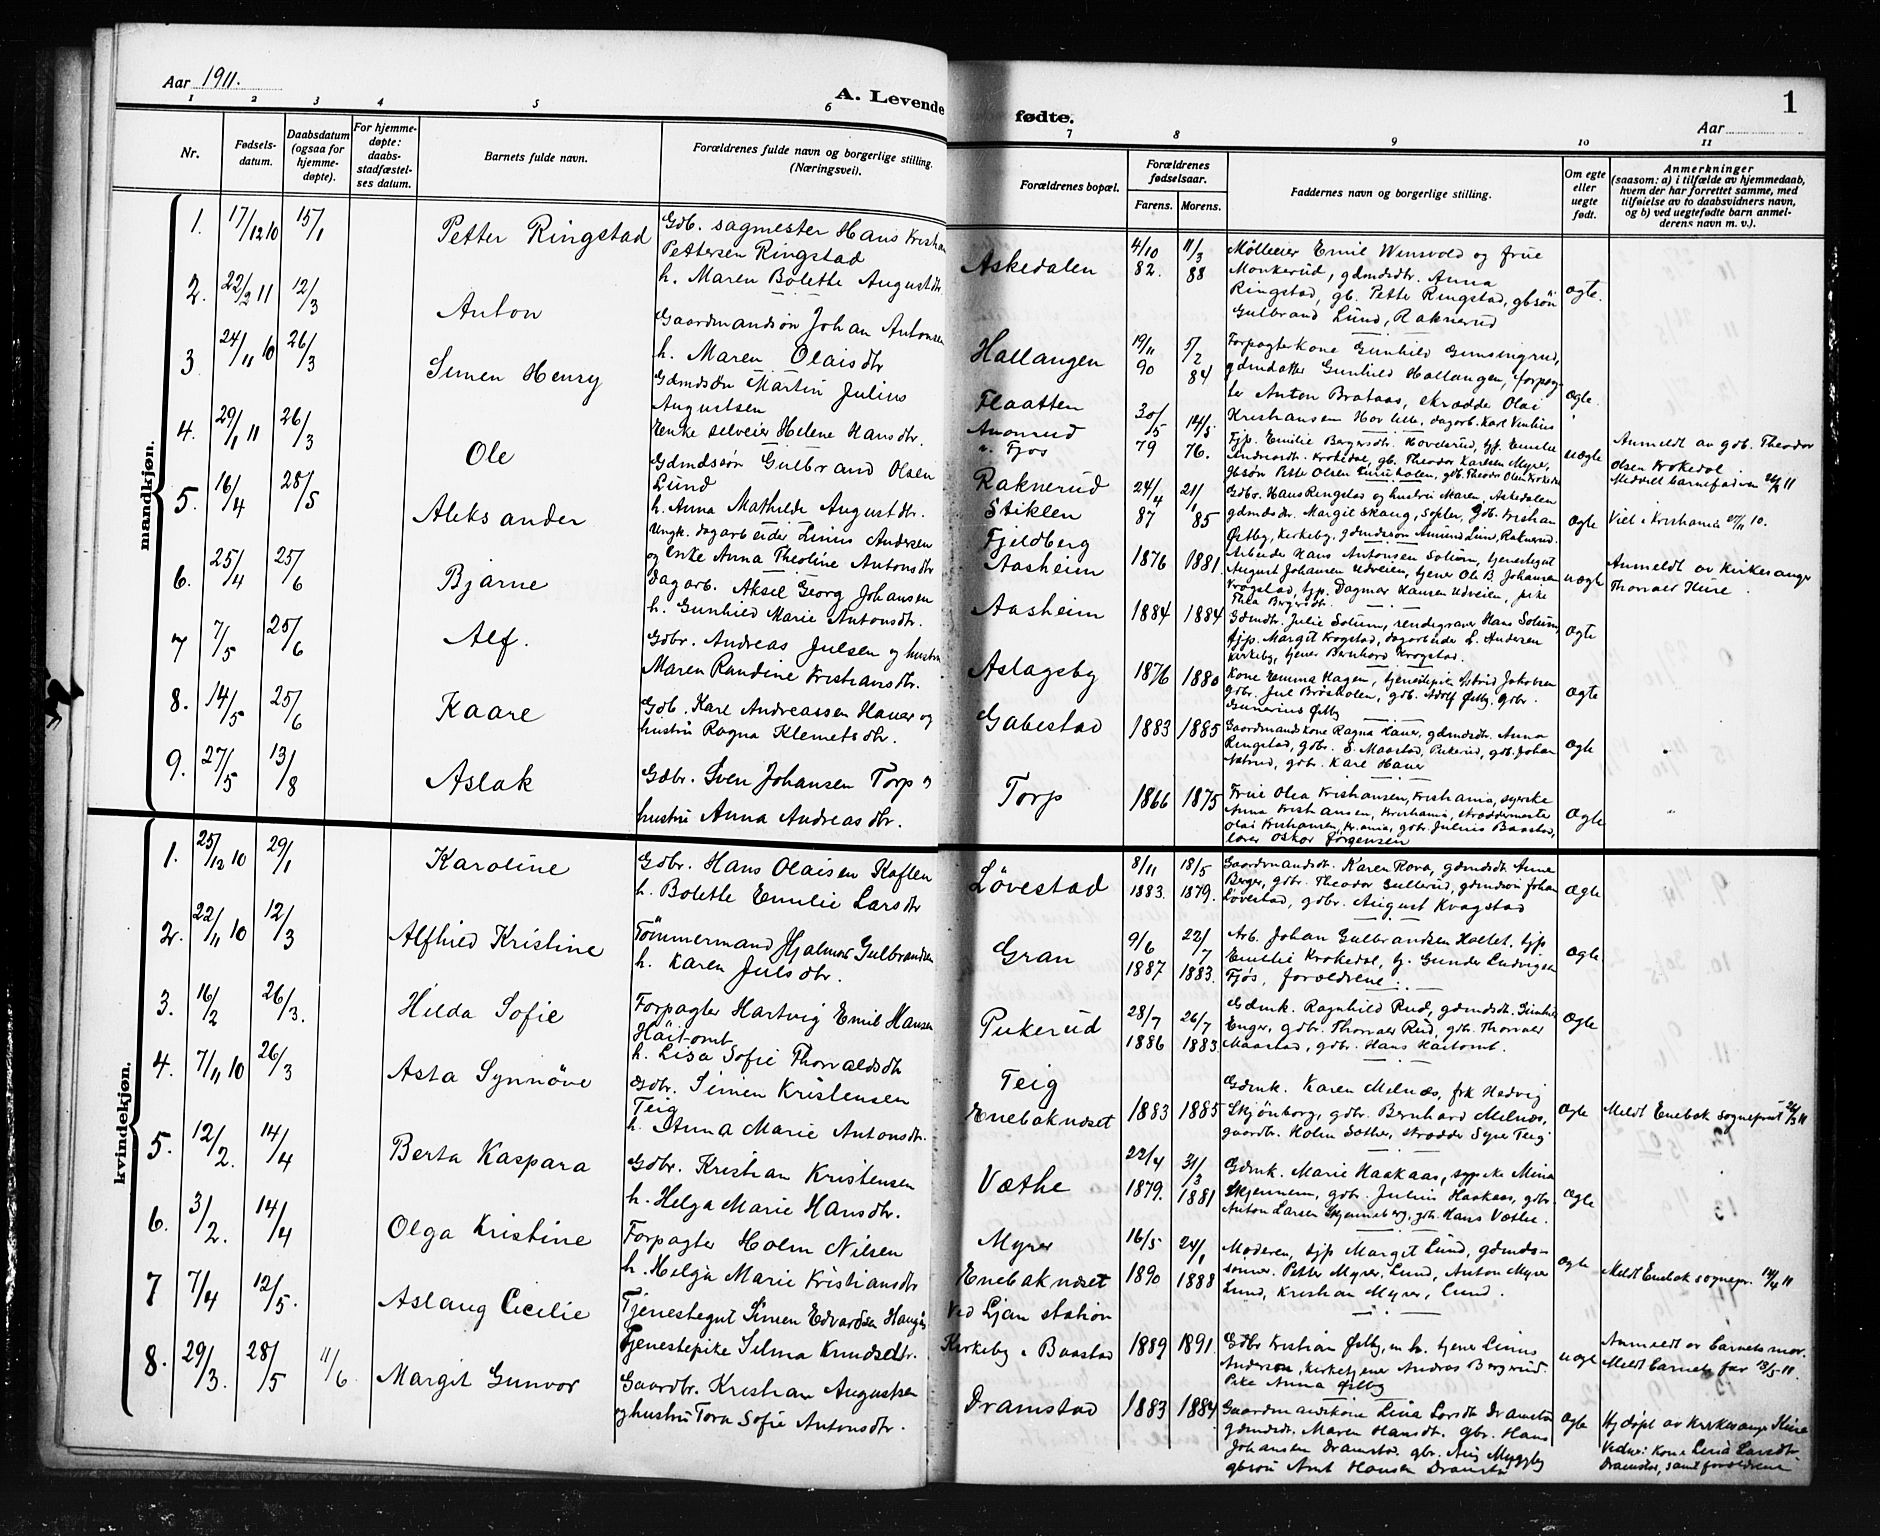 Aar 1911.
A. Levende fødte.
1
Aar
1 2 3 4 5 6 7 8 9 10 11
Nr.
Fødsels-
datum.
Daabsdatum
(ogsaa for
hjemme-
døpte).
For hjemme-
døpte:
daabs-
stadfæstel-
ses datum.
Barnets fulde navn.
Forældrenes fulde navn og borgerlige stilling.
(Næringsvei).
Forældrenes bopæl.
Forældrenes
fødselsaar.
Farens. Morens.
Faddernes navn og borgerlige stilling.
Om egte
eller
uegte
født.
Anmerkninger
(saasom: a) i tilfælde av hjemmedaab,
hvem der har forrettet samme, med
tilføielse av to daabsvidners navn,
og b) ved uegtefødte barn anmel-
derens navn m. v.).
mandkjøn.
1. 17/12 10 15/1 Petter Ringstad
Gdb. sagmester Hans Kristian
Pettersen Ringstad
h. Maren Bolette Augustdtr.
Askedalen
4/10 82. 11/3 88
Mølleeier Emil Winsvold og frue
Monkerud, gdmdsdtr. Anna
Ringstad, gb. Petter Ringstad, gbsøn
Gulbrand Lund, Raknerud
ægte.
2. 22/2 11 12/3 Anton
Gaardmandsøn Johan Antonsen
h. Maren Olaisdtr
Hallangen
19/11 90 5/2 84
Forpagterkone Gunhild
gdmdatter Gunhild Hallangen, forpag-
ter Anton Brataas, skrædder Olai
Kristiansen Hov
ægte.
3 24/11 10 26/3 Simen Henry
Gdmdsøn Martin Julius
Augustsen
Enke selveier Helene Hansdtr.
Flaatten
Fjos
30/5 79 14/3 76.
Tjp. Emilie Bergersdtr. Hovderud, tjp. Emilie
Krokedal, gb. Theodor Karlsen Myre,
gbsøn Petter Olsen
uægte
Anmeldt av gdb. Theodor
Olsen Krokedal.
Meddelt barnefaderen
4. 29/1 11 26/3 Ole
Gdmdssøn Gulbrand Olsen
Lund
h. Anna Mathilde Augustdtr.
Raknerud
24/4 87 21/1 85
Gdbr. Hans Ringstad og hustru Maren, Askedalen
gdmdsdtr. Margit Skaug,
Østby, Kirkeby, gdmdssøn Amund Lund, Raknerud.
ægte
Viet i Kristiania
5. 16/4 28/5 Aleksander
Ungk. dagarbeider Linus Andersen
og enke Anna Theoline Antonsdtr
Stiklen
Fjeldberg
Aasheim
1876 1881.
Arbeider Hans Antonsen Solum, tjenestegut
August Johansen Udveien, tjener Ole B. Johansen
Krogstad, tjp. Dagmar Hansen Udveien, pike
Thea Bergersdtr.
uægte
Anmeldt av Kirkesanger
Thorvaer Hiire.
6. 25/4 25/6 Bjarne
Dagarb. Aksel Georg Johansen
h. Gunhild Marie Antonsdtr.
Aasheim
1884 1884
Gdmdtr. Julie Solum, rendegraver Hans Solum,
tjp. Margit Krogstad, dagarbeider L. Andersen
Kirkeby, tjener Bernhard Krogstad.
ægte
7 7/5 25/6 Alf.
Gdbr. Andreas Julsen og hustru
Maren Randine Kristiansdtr.
Aslagsby
1876 1880
Kone Emma Hagen, tjenestepike Astrid Jakobsen
gdbr. Jul Bråskolen, gdb. Adolf Østby, gdbr.
Gunerius Østby
ægte
8. 14/5 25/6 Kaare
Gdb. Karl Andreassen Hauer og
hustru Ragna Klemetsdtr.
Gabestad
1883 1885
Gaardmandskone Ragna Hauer, gdmdsdtr. Anna
Ringstad, gdbr. S. Maastad, Pukerud, gdb. Johan
gdbr. Karl Hauer
ægte
9. 27/5 13/8 Aslak
Gdbr. Sven Johansen Torp og
hustru Anna Andreasdtr.
Torp
1866 1875
Frue Olea Kristiansen, Kristiania, syerske
Anna Kristiansen, Kristiania, skræddermester
Olai Kristiansen, Kr.ania, gdbr. Julius Baastad,
lærer Oskar Jørgensen
ægte
kvindekjøn.
1. 25/12 10 29/1 Karoline
Gdbr. Hans Olaisen Kaflen
h. Bolette Emilie Larsdtr
Løvestad
8/11 1883. 18/5 1879.
Gaardmandsdtr. Karen Rova, gdmdsdtr. Anne
Berger, gdbr. Theodor Sullerud, gdmdsøn Johan
Løvestad, gdbr. August Kvagstad
ægte
2. 22/11 10 12/3 Alfhild Kristine
Tømmermand Hjalmar Gulbrandsen
h. Karen Julsdtr.
Gran
9/6 1887 22/7 1883.
Arb. Johan Gulbrandsen Holtet, tjp.
Emilie Krokedal, tj. Gunder Ludvigsen
Fjøs, forældrene.
ægte
3. 16/2 26/3. Hilda Sofie
Forpagter Hartvig Emil Hansen
Haitomt
h. Lisa Sofie Thorvaldsdtr
Pukerud
28/7 1886 26/7 1883.
Gdmk. Ragnhild Rud, gdmdsdt. Gunhild
Enger, gdbr. Thorvaer Rud, gdbr. Thorvaer
Maastad, gdbr. Hans Haitomt.
ægte
4. 7/11 10 26/3 Asta Synnöve
Gdbr. Simen Kristensen
Teig
h. Anna Marie Antonsdtr.
Teig
Enebaknæset
1883 1885
Gdmk. Karen Melnæs, frk Hedvig
Skjønborg, gdbr. Bernhard Melnæs,
gaardbr. Holm Sæther, skrædder Syver Teig
ægte
Meldt Enebak sogneprest 26/3 11
5. 12/2. 14/4 Berta Kaspara
Gdbr. Kristian Kristensen
h. Helga Marie Hansdtr.
Væthe
22/4 1879. 31/3 1881
Gdmk. Marie Haakaas, sypike Mina
Skjennem, gdbr. Julius Haakaas, gdbr.
Anton Larsen Skjenneberg, gdb. Hans Væthe.
ægte
6. 3/2. 14/4 Olga Kristine
Forpagter Holm Nilsen
h. Helga Marie Kristiansdtr
Myrer
Enebaknæset
16/5 1890 24/1 1888
Moderen, tjp Margit Lund, gdmds-
sønner. Petter Myrer, Lund, Anton Myrer
Lund, Kristian Myrer, Lund.
ægte
Meldt Enebak sognepr. 14/4 11
7 7/4 12/5. Aslaug Cecilie
Tjenestegut Simen Edvardsen Haugen
Tjenestepike Selma Knudsdtr.
Ved Ljan station
Kirkeby i Baastad
1889 1891.
Gdbr Kristian Østby, m. h. tjener Linus
Anderson, kirketjener Andreas Bergerud.
Pike Anna Østby
uægte
Anmeldt av barnets mor.
Meldt barnets far 13/5 11.
8. 29/3. 28/5 11/6 Margit Gunvor
Gaardbr. Kristian Augustsen
og hustru Tora Sofie Antonsdtr.
Dramstad
1883 1884
Gaardmandskone Lina Larsdtr Dramstad
gdmdsdtr. Maren Hansdtr. gbr. Hans
Johansen Dramstad, gbr. Myggby
gbsøn Hansen Dramstad
ægte
Hj.døpt av Kirkesanger Hiire
Vidner: Kone Lina Larsdtr.
Dramstad, samt forældrene